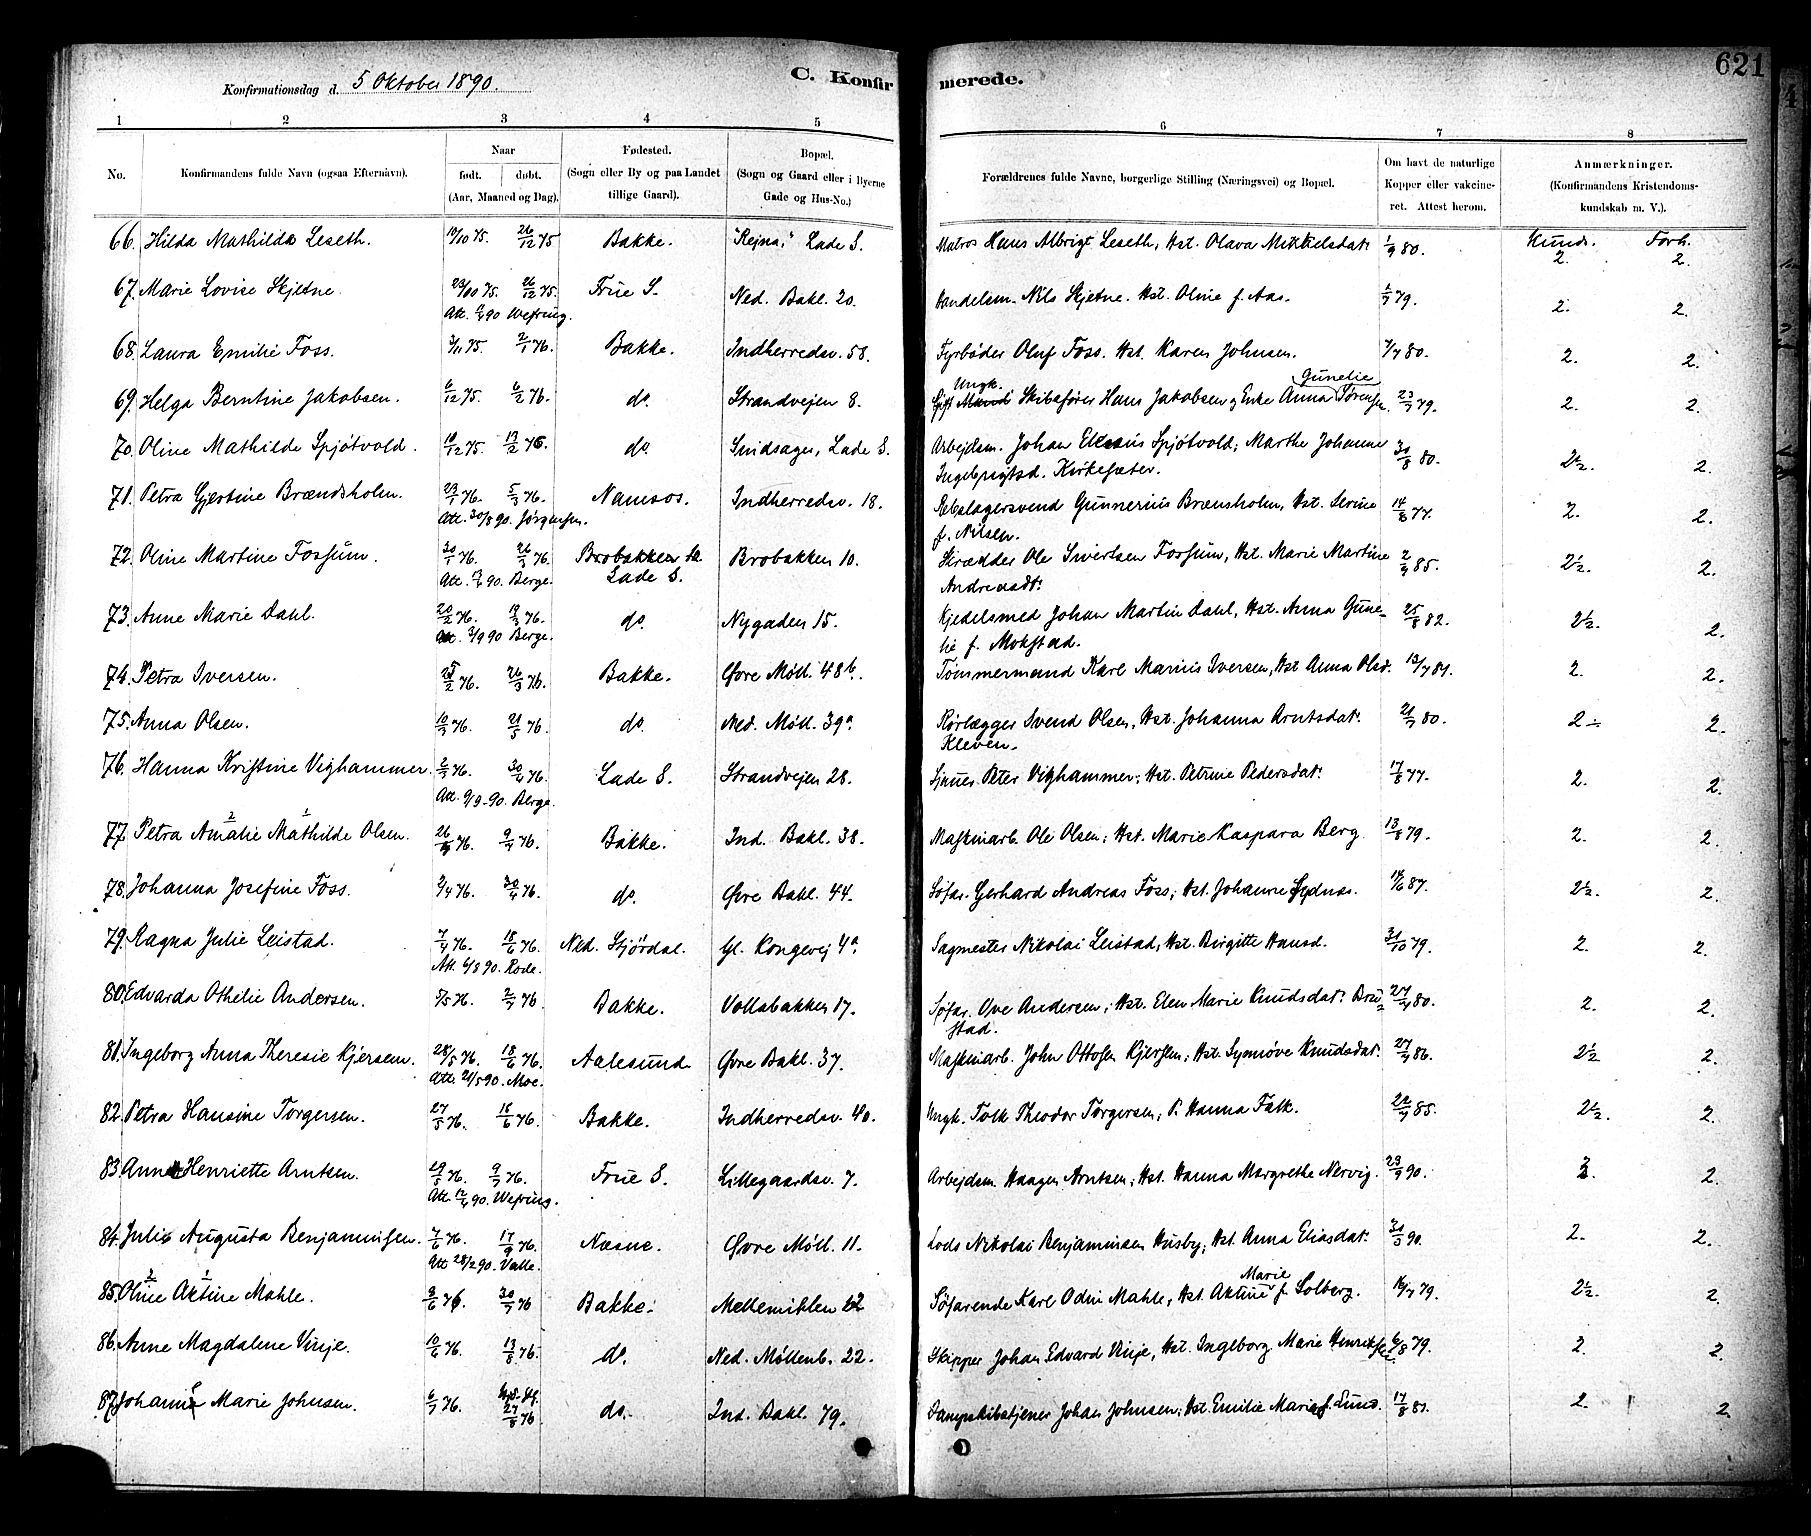 621
Konfirmationsdag d. 5 Oktober 1890.
C. Konfirmerede.
1 2 3 4 5 6 7 8
No.
Konfirmandens fulde Navn (ogsaa Efternavn).
Naar
født. døbt.
(Aar, Maaned og Dag).
Fødested.
(Sogn eller By og paa Landet
tillige Gaard).
Bopæl.
(Sogn og Gaard eller i Byerne
Gade og Hus-No.)
Forældrenes fulde Navne, borgerlige Stilling (Næringsvei) og Bopæl.
Om havt de naturlige
Kopper eller vakcine-
ret. Attest herom.
Anmærkninger.
(Konfirmandens Kristendoms-
kundskab m. V.).
Kunds. Forh.
66. Hilda Mathilda Leseth. 19/10 75. 26/12 75 Bakke. "Rejna," Lade S. Matros Hans Albrigt Leseth, Hst. Olava Mikkelsdat. 1/9 80. 2. 2.
67. Marie Lovise Skjetne. 23/10 75. 26/12 75. Frue S. Ned. Bakl. 20. Handelsm. Nils Skjetne. Hst. Oline f. Aas. 79. 2. 2.
90 Wefring.
68. Laura Emilie Foss. 3/11 75. 2/1 76. Bakke. Indherredsv. 58. Fyrbøder Oluf Foss. Hst. Karen Johnsen. 80. 2. 2.
Ungk. Gunelie
69. Helga Berntine Jakobsen. 6/12 75. 6/2 76. do. Strandvejen 8. Gift Mand Skibsfører Hans Jakobsen og Enke Anna Sørensen. 23/7 79. 2. 2.
70. Oline Mathilde Spjøtvold. 10/12 75. 13/2 76 do. Smidsager, Lade S. Arbejdsm. Johan Spjøtvold; Marthe Johanne 30/8 80. 2½. 2.
Ingebrigtsd. Kirkesæter.
71. Petra Gjertine Brændsholm. 23/1 76. 5/3 76. Namsos. Indherredsv. 18. Rebslagersvend Gunnerius Brænsholm, Hst. Serine 14/8 77. 2. 2.
Att. 30/8 90. Jørgensen. f. Nilsen.
72. Oline Martine Fossum. 30/1 76. 26/3 76. Brobakken Lade S. Brobakken 10. Skrædder Ole Sivertsen Fossum, Hst. Marie Martine 2/9 85. 2½. 2.
90. Berge. Andreasdt.
73. Anne Marie Dahl. 20/2 76. 19/3 76. do. Nygaden 15. Kjedelsmed Johan Martin Dahl, Hst. Anna Gune- 25/8 82. 2½. 2.
Att. 2/9 90 Berge. lie f. Mokstad.
74. Petra Iversen. 25/2 76. 26/3 76. Bakke. Øvre Møll. 48b. Tømmermand Karl Marius Iversen, Hst Anna Olsd. 13/7 81. 2. 2.
75. Anna Olsen. 10/3 76. 21/5 76. do. Ned. Møll. 39a Rørlægger Svend Olsen, Hst. Johanna Arntsdat. 21/7 80. 2÷ 2.
Kleven.
76. Hanna Kristine Vighammer. 2/3 76. 30/4 76. Lade S. Strandvejen 28. Sjaues. Peter Vighammer; Hst. Petrine Pedersdat. 17/8 77. 2. 2.
Att. 9/9 - 90. Berge.
2 1
77. Petra Amalie Mathilde Olsen. 26/3 76. 9/7 76. Bakke. Ind. Bakl. 38. Maskinarb. Ole Olsen; Hst. Marie Kaspara Berg. 13/8 79. 2. 2.
78. Johanna Josefine Foss. 3/4 76. 30/4 76. do. Øvre Bakl. 44. Søfar. Gerhard Andreas Foss; Hst. Johanne Sydnæs. 87. 2½. 2.
79. Ragna Julie Leistad. 7/4 76. 18/6 76. Ned. Stjördal. Gl. Kongevej 4a. Sagmester Nikolai Leistad, Hst. Birgitte Hansd. 31/10 79. 2. 2.
Att. 6/8 90. Rode.
80. Edvarda Othelie Andersen. 5/5 76. 2/7 76 Bakke. Vollabakken 17. Søfar. Ove Andersen; Hst. Elen Marie Knudsdat. Bru- 27/9 80. 2. 2.
stad.
81. Ingeborg Anna Theresie Kjersem. 28/5 76. 18/6 76. Aalesund Øvre Bakl. 37. Maskinarb. John Ottosen Kjersem; Hst. Synnøve Knudsdat. 27/9 86. 2½ 2.
Att. 21/5 90. Moe.
82. Petra Hansine Torgersen. 27/5 76. 18/6 76. Bakke. Indherredsv. 40. Ungk. Tolk Theodor Torgersen; P. Hanna Falk. 22/7 85. 2½. 2.
83. Anne Henriette Arntsen. 29/5 76. 9/7 76. Frue S. Lillegaardsv. 7. Arbejdsm. Haagen Arntsen; Hst. Hanna Margrethe Nervig. 23/9 90. 2. 2.
90. Wefring.
84. Julie Augusta Benjaminsen. 7/6 76. 17/9 76. Næsne. Øvre Møll. 11. Lods Nikolai Benjaminsen Husby; Hst. Anna Eliasdat. 30/5 90. 2. 2.
Att 28/2 90. Valle.
2 1 Marie
85. Oline Aktine Mahle. 9/6 76. 30/7 76 Bakke. Mellemilen 12 Søfarende Karl Odin Mahle, Hst. Aktine f. Solberg. 79. 2½. 2.
86. Anne Magdalene Vinje. 10/6 76. 13/8 76. do. Ned. Møllenb. 22. Skipper Johan Edvard Vinje, Hst. Ingeborg Marie Henriksen. 6/8 79. 2. 2.
87. Johanne Marie Johnsen. 6/7 76. 27/8 76 do. Ind. Bakl. 79. Dampskibstjener Johan Johnsen; Hst. Emilie Marie f. Lund. 17/8 81. 2. 2.